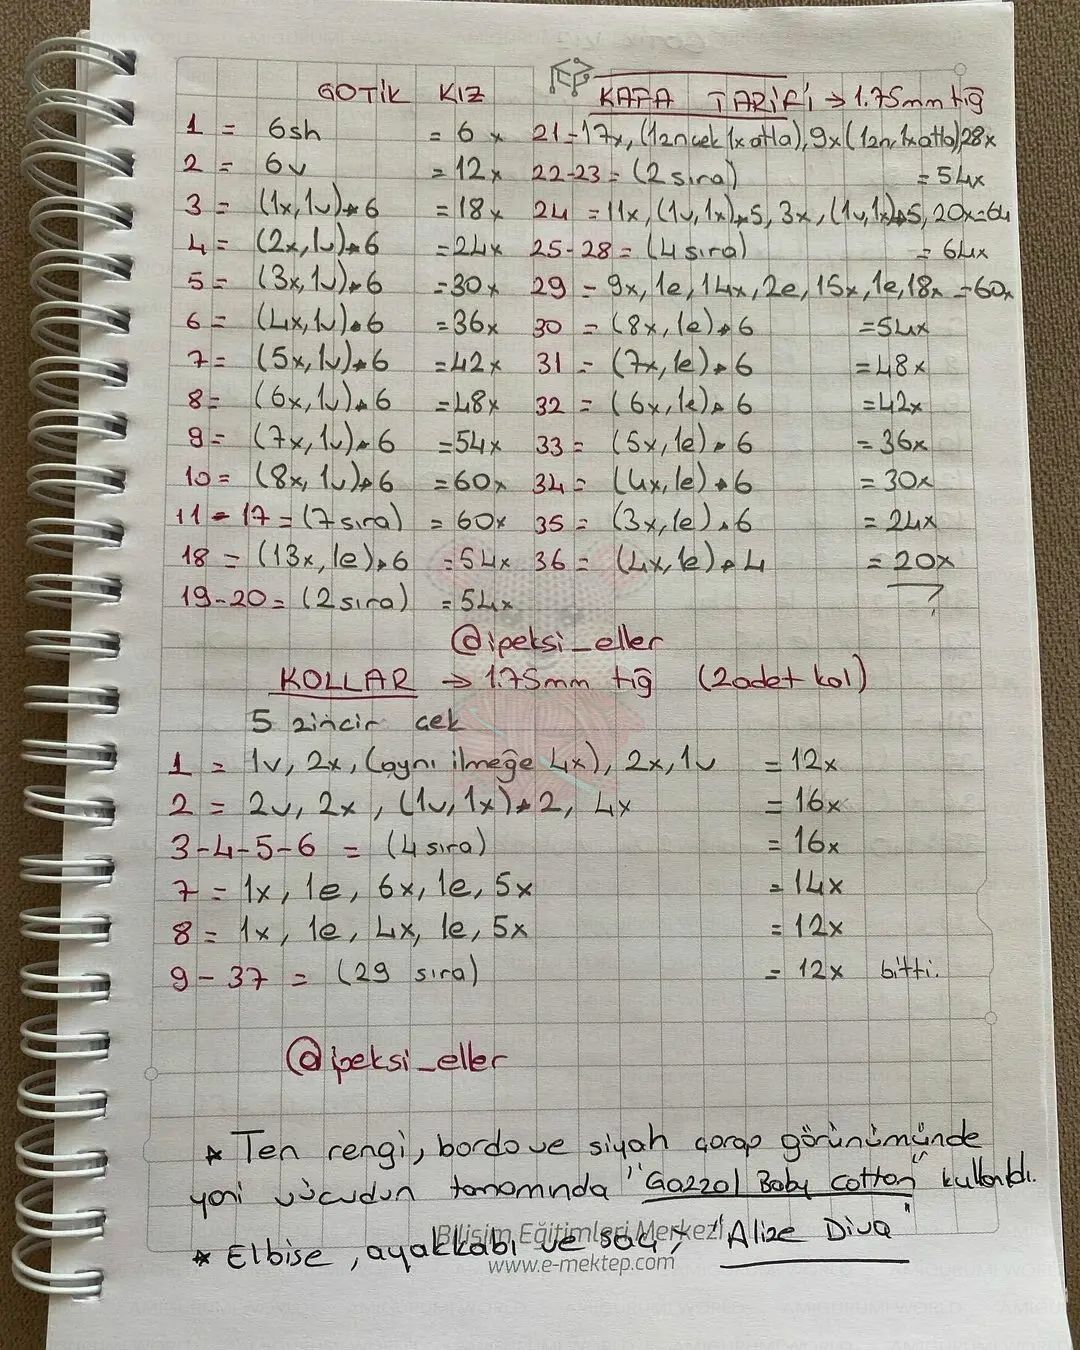 GOTİK KIZ
KAFA TARİFİ → 1.75mm tığ
1 = 6sh = 6x
2 = 6v = 12x
3 = (1x, 1v)*6 = 18x
4 = (2x, 1v)*6 = 24x
5 = (3x, 1v)*6 = 30x
6 = (4x, 1v)*6 = 36x
7 = (5x, 1v)*6 = 42x
8 = (6x, 1v)*6 = 48x
9 = (7x, 1v)*6 = 54x
10 = (8x, 1v)*6 = 60x
11-17 = (7 sıra) = 60x
18 = (13x, 1e)*6 = 54x
19-20 = (2 sıra) = 54x
21 = 17x, (1zn çek 1x atla), 9x (1zn, 1x atla) 28x
22-23 = (2 sıra) = 54x
24 = 11x, (1v, 1x)*5, 3x, (1v, 1x)*5, 20x = 64
25-28 = (4 sıra) = 64x
29 = 9x, 1e, 14x, 2e, 15x, 1e, 18x = 60x
30 = (8x, 1e)*6 = 54x
31 = (7x, 1e)*6 = 48x
32 = (6x, 1e)*6 = 42x
33 = (5x, 1e)*6 = 36x
34 = (4x, 1e)*6 = 30x
35 = (3x, 1e)*6 = 24x
36 = (4x, 1e)*4 = 20x
?
@ipeksi_eller
KOLLAR → 1.75mm tığ (2 adet kol)
5 zincir çek
1 = 1v, 2x, (aynı ilmeğe 4x), 2x, 1v = 12x
2 = 2v, 2x, (1v, 1x)*2, 4x = 16x
3-4-5-6 = (4 sıra) = 16x
7 = 1x, 1e, 6x, 1e, 5x = 14x
8 = 1x, 1e, 4x, 1e, 5x = 12x
9-37 = (29 sıra) = 12x bitti.
@ipeksi_eller
* Ten rengi, bordo ve siyah çorap görünümünde
yani vücudun tamamında "Gazzal Baby cotton" kullanıldı.
Bilişim Eğitimleri Merkezi
* Elbise, ayakkabı ve saç; "Alize Diva"
www.e-mektep.com